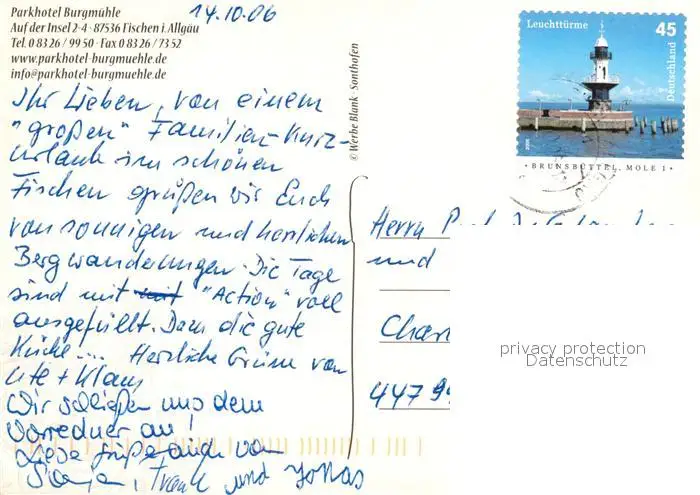 Parkhotel Burgmühle
Auf der Insel 2-4 · 87538 Fischen i. Allgäu
Tel. 0 83 26 / 99 50 · Fax 0 83 26 / 73 52
www.parkhotel-burgmuehle.de
info@parkhotel-burgmuehle.de
14.10.06
Ihr Lieben, von einem
"großen" Familien-Kurz-
urlaub im schönen
Fischen grüßen wir Euch
von sonnigen und herrlichen
Bergwanderungen. Die Tage
sind mit "Action" voll
ausgefüllt. Dann die gute
Küche... Herzliche Grüsse von
Ute + Klaus
Wir schließen uns dem
Vorredner an!
Liebe Grüße auch von
Sonja, Frank und Jonas
© Werbe Blank · Sonthofen
Leuchttürme
45
Deutschland
2005
· BRUNSBÜTTEL, MOLE 1 ·
Herrn Prof.
und
447
privacy protection
Datenschutz